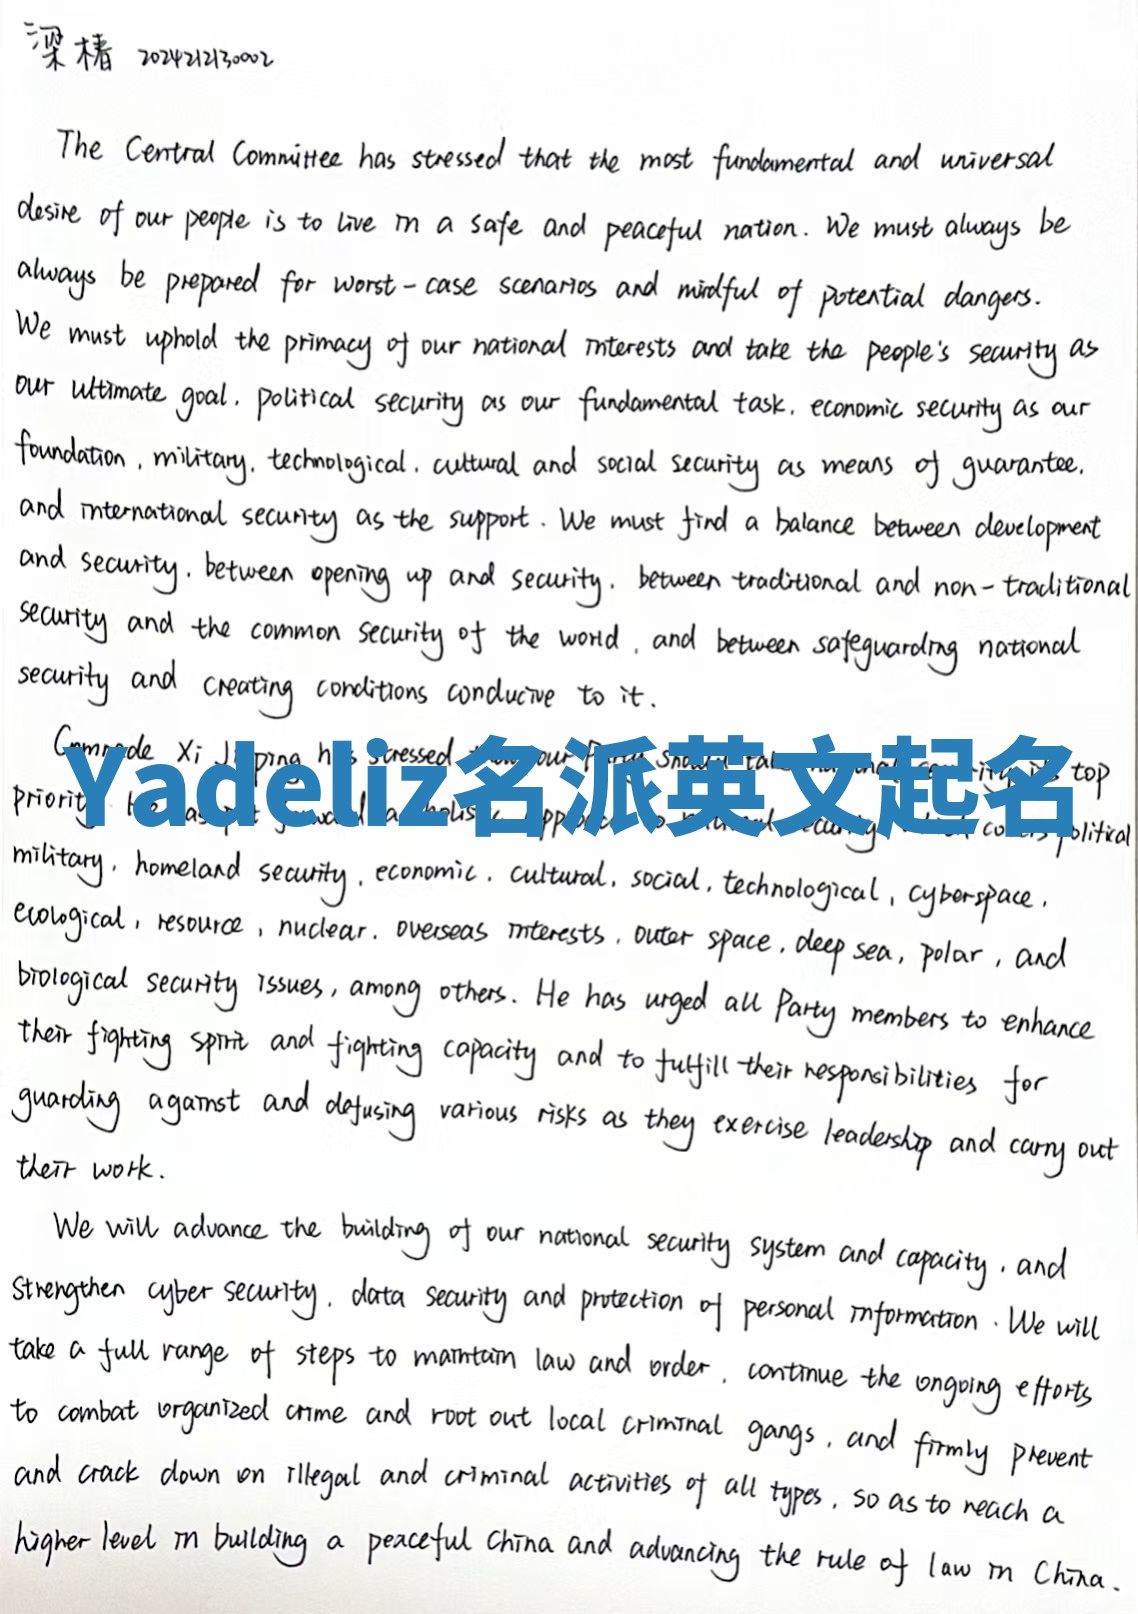 梁椿 2024212130002
The Central Committee has stressed that the most fundamental and universal
desire of our people is to live in a safe and peaceful nation. We must always be
always be prepared for worst-case scenarios and mindful of potential dangers.
We must uphold the primacy of our national interests and take the people's security as
our ultimate goal, political security as our fundamental task, economic security as our
foundation, military, technological, cultural and social security as means of guarantee,
and international security as the support. We must find a balance between development
and security, between opening up and security, between traditional and non-traditional
security and the common security of the world, and between safeguarding national
security and creating conditions conducive to it.
Comrade Xi Jinping has stressed our top
Yadeliz名派英文起名
priority political
military, homeland security, economic, cultural, social, technological, cyberspace,
ecological, resource, nuclear, overseas interests, outer space, deep sea, polar, and
biological security issues, among others. He has urged all Party members to enhance
their fighting spirit and fighting capacity and to fulfill their responsibilities for
guarding against and defusing various risks as they exercise leadership and carry out
their work.
We will advance the building of our national security system and capacity, and
strengthen cyber security, data security and protection of personal information. We will
take a full range of steps to maintain law and order, continue the ongoing efforts
to combat organized crime and root out local criminal gangs, and firmly prevent
and crack down on illegal and criminal activities of all types, so as to reach a
higher level in building a peaceful China and advancing the rule of law in China.